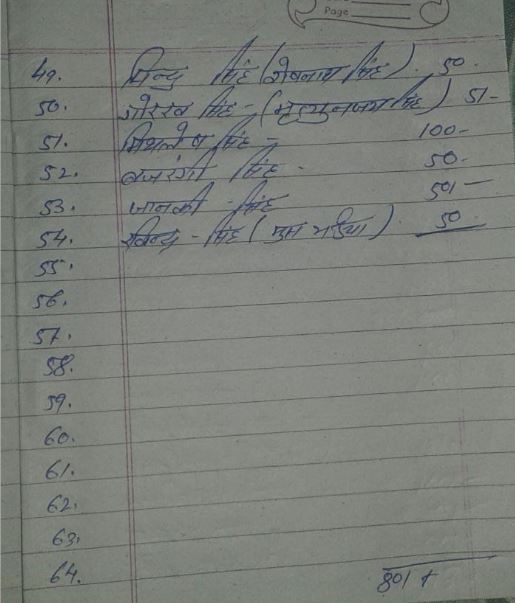 Page
49. मिन्टु सिंह (शेषनाथ सिंह). 50.
50. गोरख सिंह - (मृत्युनजय सिंह) 51-
51. मिथलेष सिंह - 100-
52. बजरंगी सिंह. 50-
53. जानकी सिंह 501-
54. रविन्द्र - सिंह ( ) 50
55.
56.
57.
58.
59.
60.
61.
62.
63.
64. 801 +